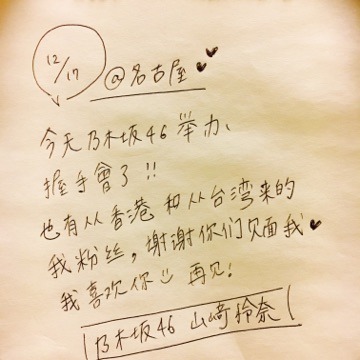 12/17
@名古屋
今天乃木坂46 举办、
握手會了!!
也有从香港 和从台湾来的
我粉丝，谢谢你们见面我
我喜欢你 再见!
乃木坂46 山崎怜奈